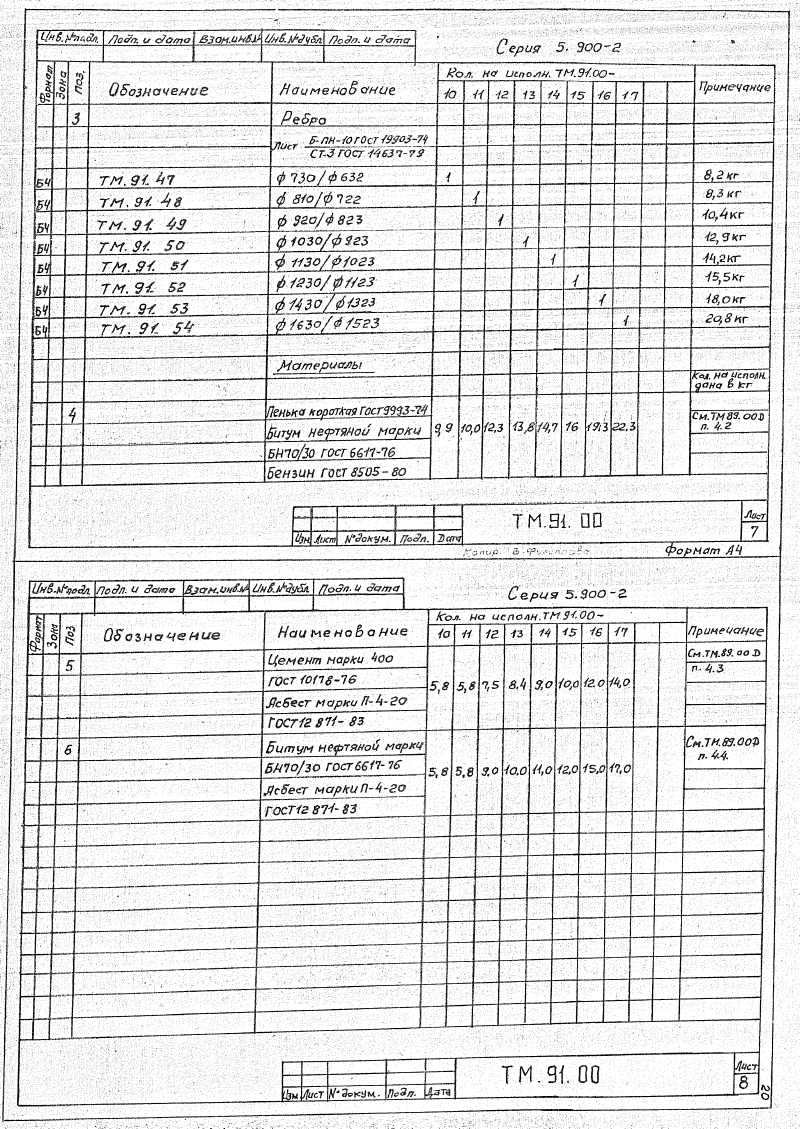 Инв.№подл. Подп. и дата Взам.инв.№ Инв.№дубл. Подп. и дата
Серия 5.900-2
Формат Зона Поз. Обозначение Наименование Кол. на исполн. ТМ.91.00- Примечание
10 11 12 13 14 15 16 17
3 Ребро
Лист Б-ПН-10 ГОСТ 19903-74
СТ.3 ГОСТ 14637-79
Б4 ТМ.91.47 ф730/ф632 1 8,2кг
Б4 ТМ.91.48 ф810/ф722 1 8,3кг
Б4 ТМ.91.49 ф920/ф823 1 10,4кг
Б4 ТМ.91.50 ф1030/ф923 1 12,9кг
Б4 ТМ.91.51 ф1130/ф1023 1 14,2кг
Б4 ТМ.91.52 ф1230/ф1123 1 15,5кг
Б4 ТМ.91.53 ф1430/ф1323 1 18,0кг
Б4 ТМ.91.54 ф1630/ф1523 1 20,8кг
Материалы Кол. на исполн.
дана в кг
4 Пенька короткая ГОСТ 9993-74 См.ТМ89.00Д
Битум нефтяной марки 9,9 10,0 12,3 13,8 14,7 16 19,3 22,3 п. 4.2
БН70/30 ГОСТ 6617-76
Бензин ГОСТ 8505-80
Изм Лист №докум. Подп. Дата ТМ.91.00 Лист
7
Копир. Формат А4
Инв.№подл. Подп. и дата Взам.инв.№ Инв.№дубл. Подп. и дата
Серия 5.900-2
Формат Зона Поз Обозначение Наименование Кол. на исполн. ТМ 91.00- Примечание
10 11 12 13 14 15 16 17
5 Цемент марки 400 См.ТМ.89.00Д
ГОСТ 10178-76 5,8 5,8 7,5 8,4 9,0 10,0 12,0 14,0 п. 4.3
Асбест марки П-4-20
ГОСТ 12871-83
6 Битум нефтяной марки См.ТМ.89.00Д
БН70/30 ГОСТ 6617-76 5,8 5,8 9,0 10,0 11,0 12,0 15,0 17,0 п. 4.4.
Асбест марки П-4-20
ГОСТ 12871-83
Изм Лист №докум. Подп. Дата ТМ.91.00 Лист
8
20